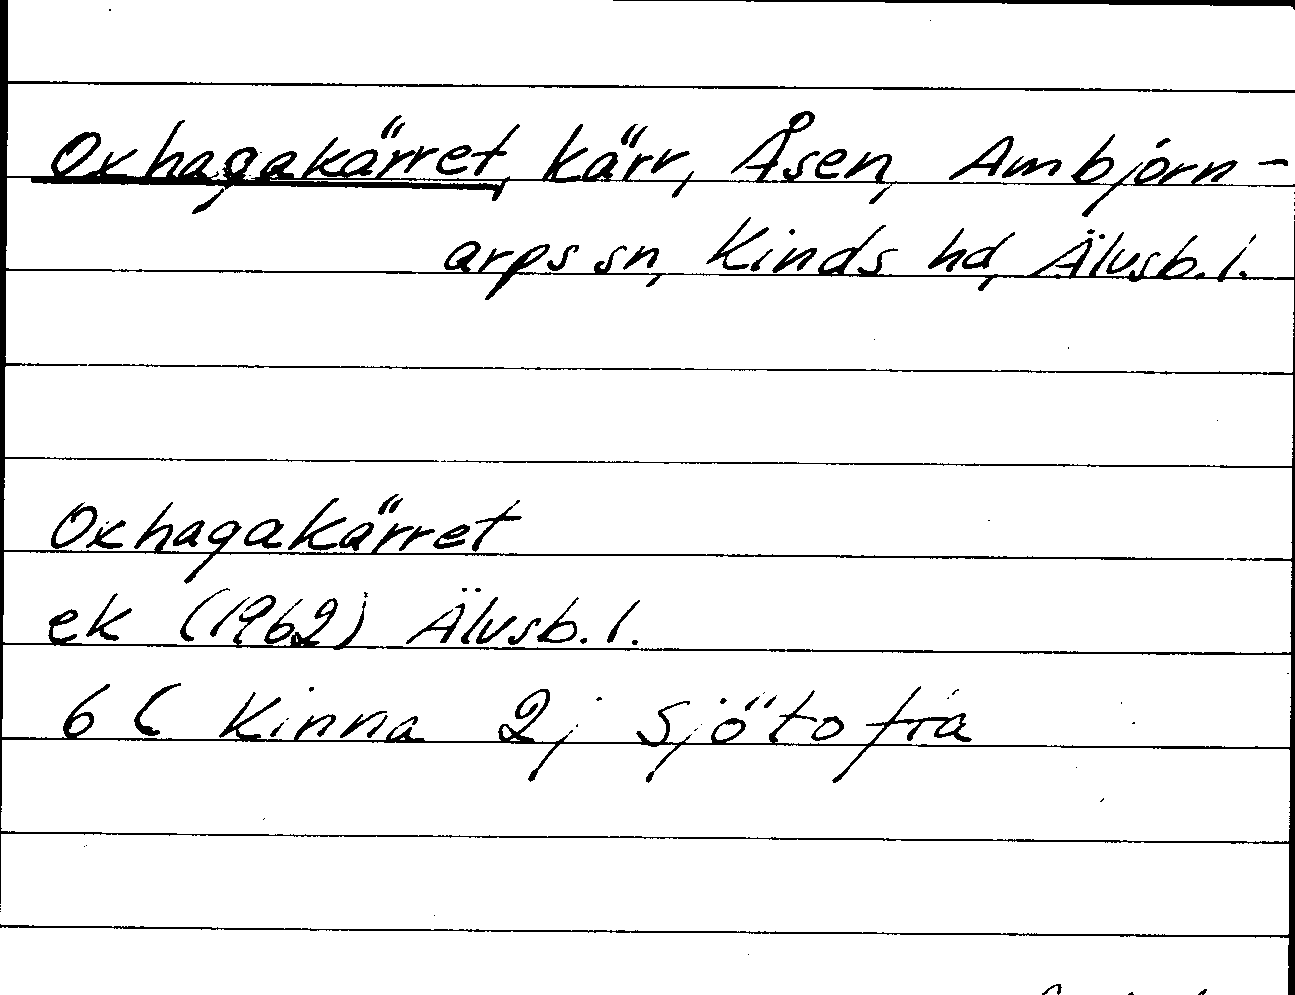 Oxhagakärret, kärr, Åsen, Ambjörn-
arps sn, Kinds hd, Älvsb. l.
Oxhagakärret
ek (1962) Älvsb. l.
6 C Kinna 2j Sjötofta